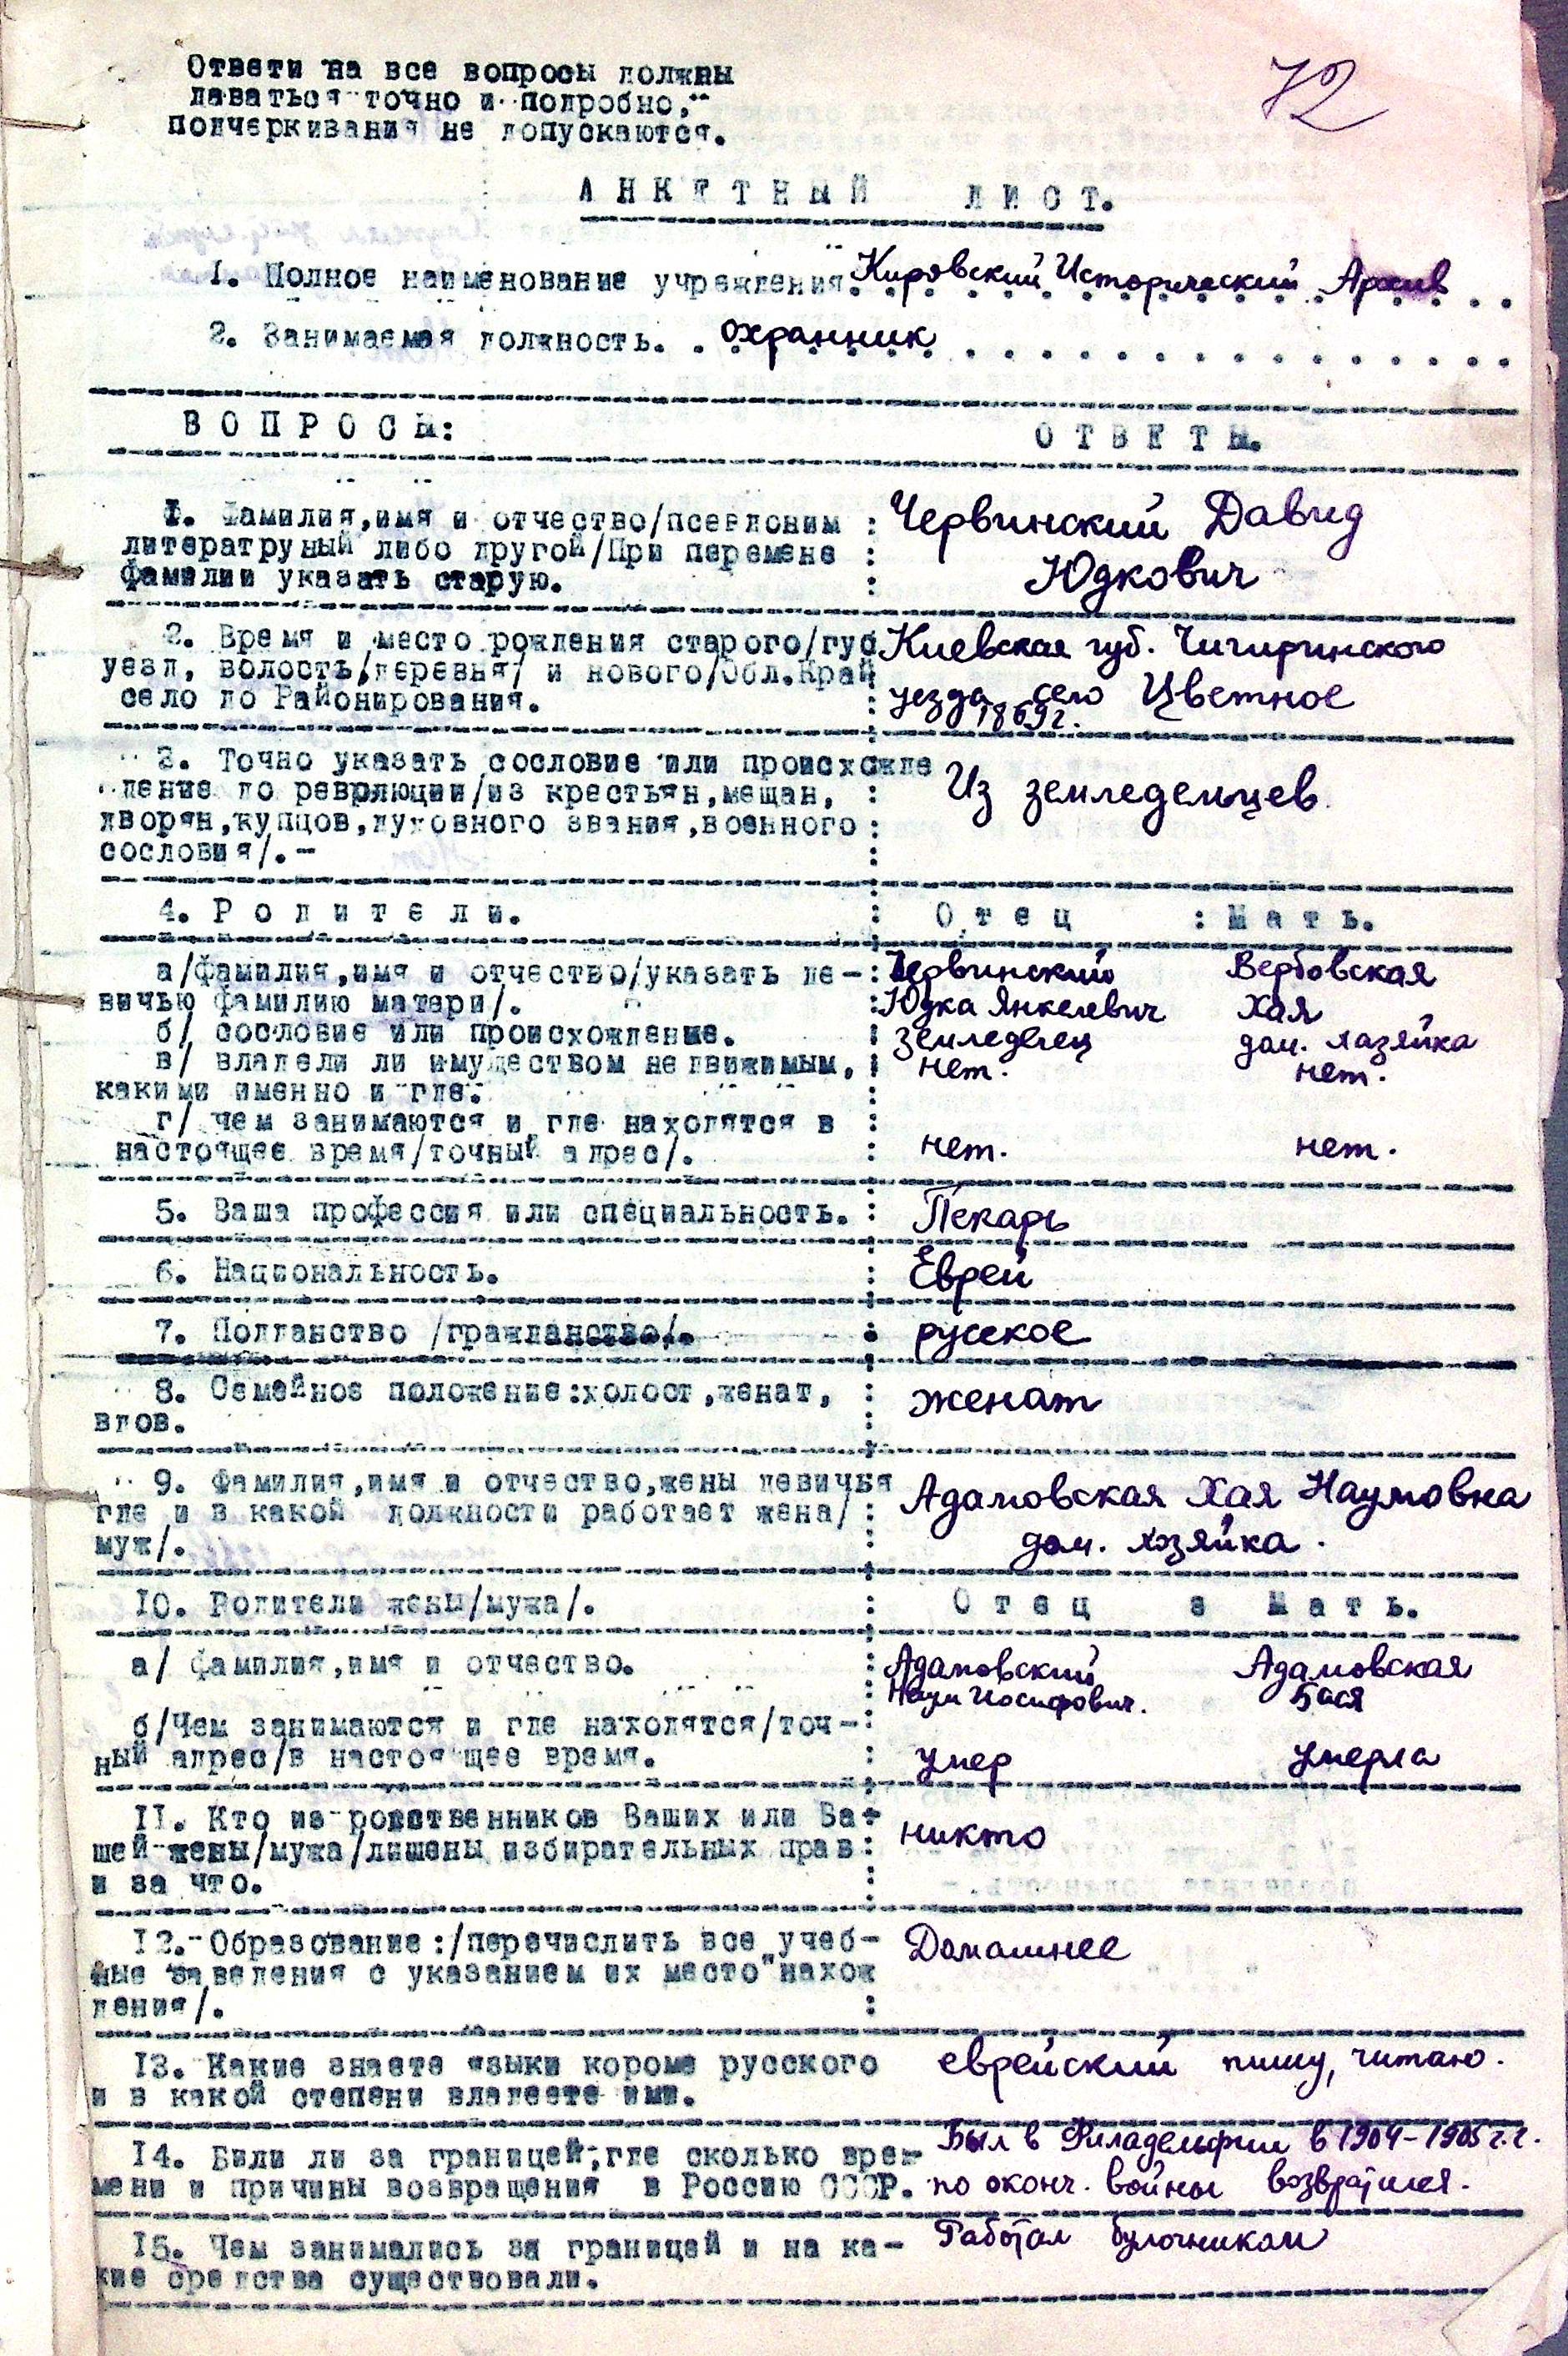 Ответи на все вопросы должны
даваться точно и подробно,
подчеркивания не допускаются.
72
АНКЕТНЫЙ ЛИСТ.
1. Полное наименование учреждения. Кировский Исторический Архив
2. Занимаемая должность. . охранник
ВОПРОСЫ: ОТВЕТЫ.
1. Фамилия,имя и отчество/псевдоним : Червинский Давид
литератруный либо другой/При перемене :
фамилии указать старую. : Юдкович
2. Время и место рождения старого/губ Киевская губ. Чигиринского
уезд, волость/деревня/ и нового/Обл.Край
село до Районирования. : уезда село Цветное
1869г.
3. Точно указать сословие или происхожде
дение до револющии/из крестьян,мещан, : Из земледельцев.
дворян,купцов,духовного звания,военного :
сословия/.-
4. Родители. : Отец : Мать.
а/фамилия,имя и отчество/указать де- : Червинский Вербовская
вичью фамилию матери/. : Юдка Янкелевич Хая
б/ сословие или происхождение. : земледелец дом. хазяйка
в/ владели ли имуществом недвижимым, : нет. нет.
какими именно и где.
г/ чем занимаются и где находятся в :
настоящее время/точный адрес/. : нет. нет.
5. Ваша профессия или специальность. : Пекарь
6. Национальность. : Еврей
7. Подданство /гражданство/. : русское
8. Семейное положение:холост,женат, : женат
вдов.
9. Фамилия,имя и отчество,жены девичья
где и в какой должности работает жена/ : Адамовская Хая Наумовна
муж/. дом. хозяйка.
10. Родители жены/мужа/. : Отец : Мать.
а/ фамилия,имя и отчество. : Адамовский Адамовская
Наум Иосифович. Бася
б/Чем занимаются и где находятся/точ- :
ный адрес/в настоящее время. : умер умерла
11. Кто из родственников Ваших или Ва-
шей жены/мужа/лишены избирательных прав : никто
и за что. :
12. Образование:/перечислить все учеб- Домашнее
ные заведения с указанием их место нахож
дения/. :
13. Какие знаете языки короме русского еврейский пишу, читаю.
и в какой степени владеете ими.
14. Били ли за границей,где сколько вре- Был в Филадельфии в 1904-1905 г.г.
мени и причины возвращения в Россию СССР. по оконч. войны возвратился.
15. Чем занимались за границей и на ка- Работал булочником
кие средства существовали.